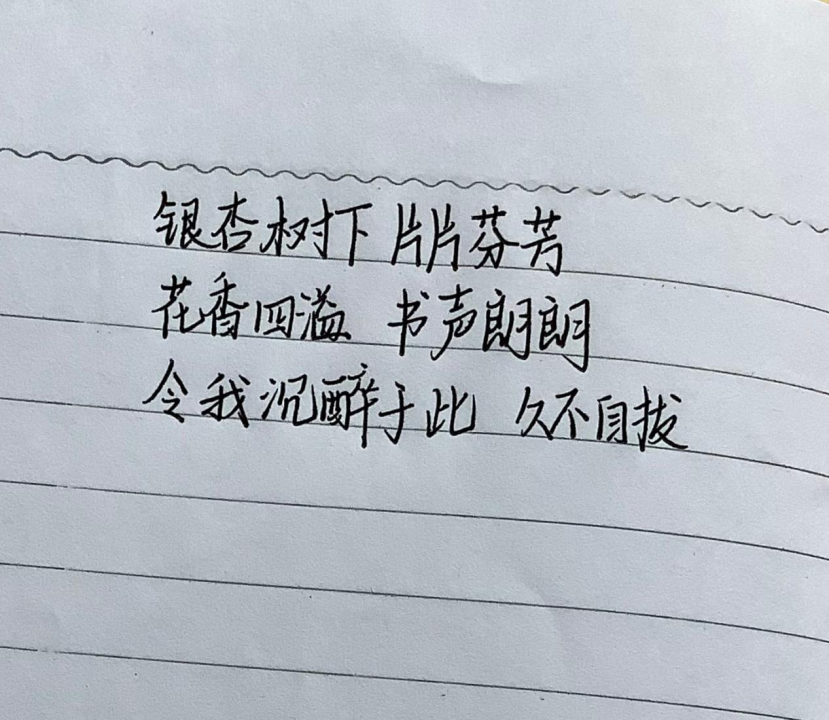 银杏树下 片片芬芳
花香四溢 书声朗朗
令我沉醉于此 久不自拔